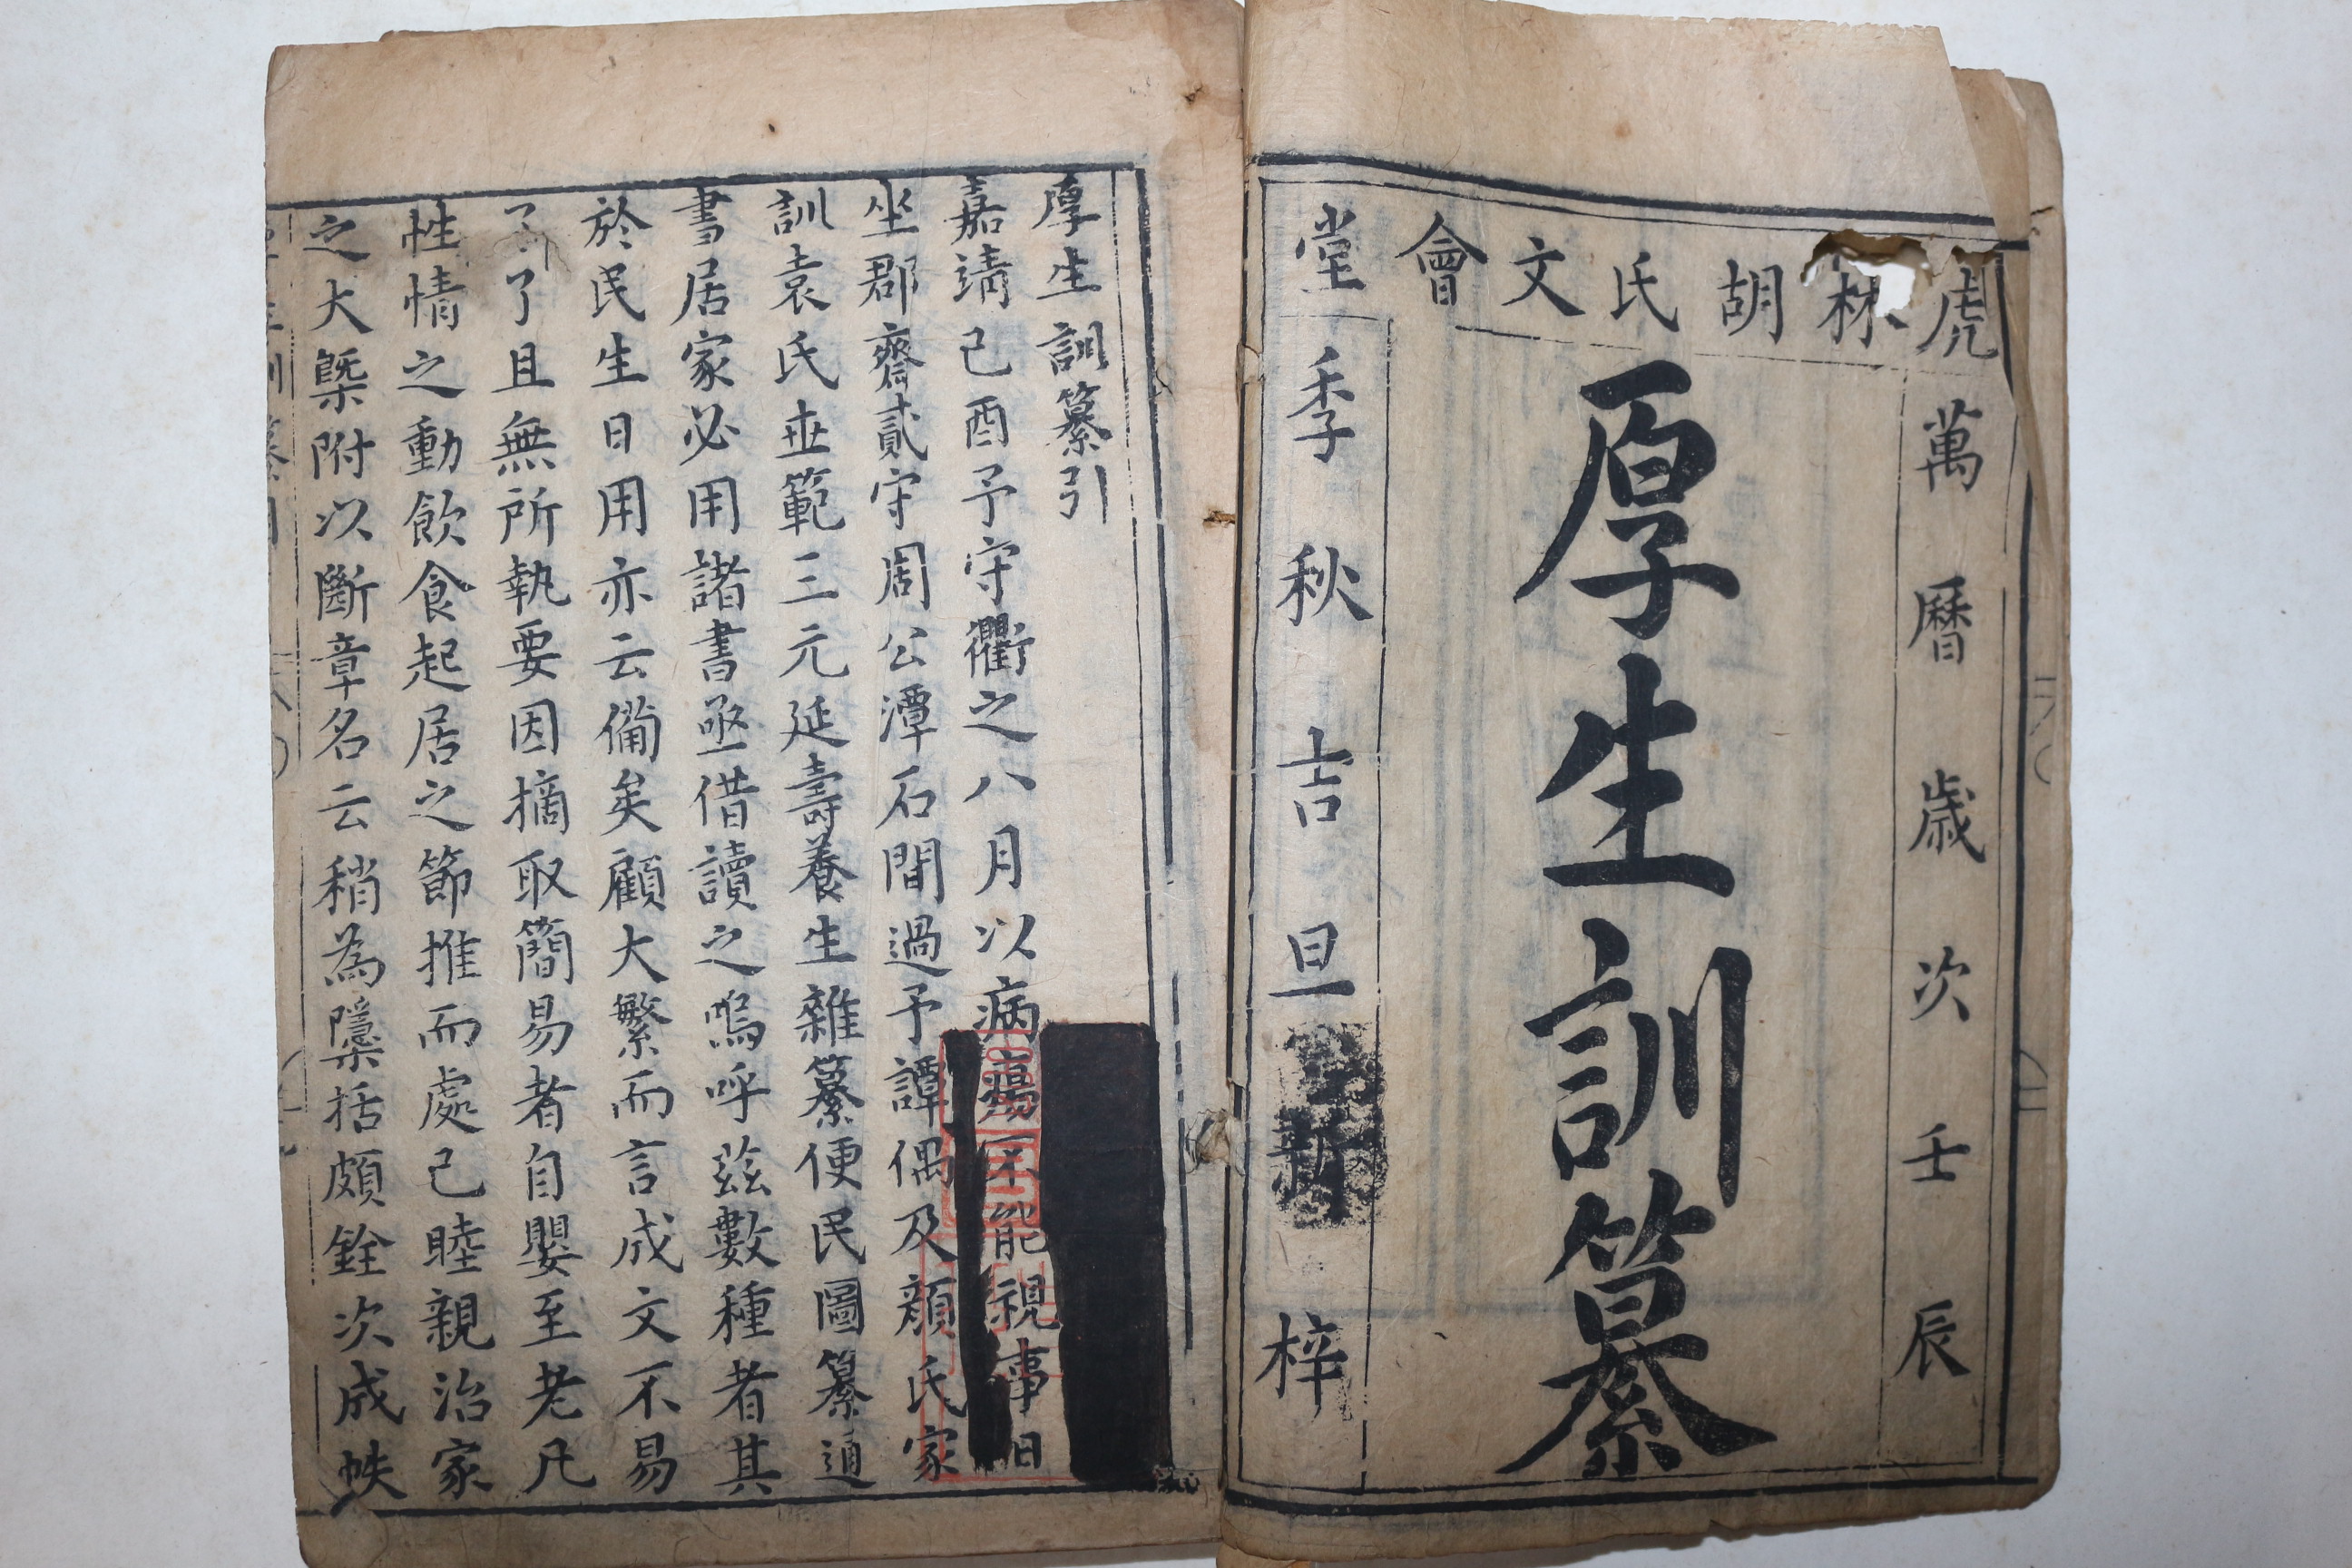 虎林胡氏文會堂
萬曆歲次壬辰
厚生訓纂
季秋吉旦新梓
厚生訓纂引
嘉靖己酉予守衢之八月以病瘍不能視事日
坐郡齋貳守周公潭石間過予譚偶及顏氏家
訓袁氏世範三元延壽養生雜纂便民圖纂通
書居家必用諸書亟借讀之嗚呼茲數種者其
於民生日用亦云備矣顧大繁而言成文不易
了了且無所執要因摘取簡易者自嬰至老凡
性情之動飲食起居之節推而處己睦親治家
之大槩附以斷章名云稍為隱括頗銓次成帙